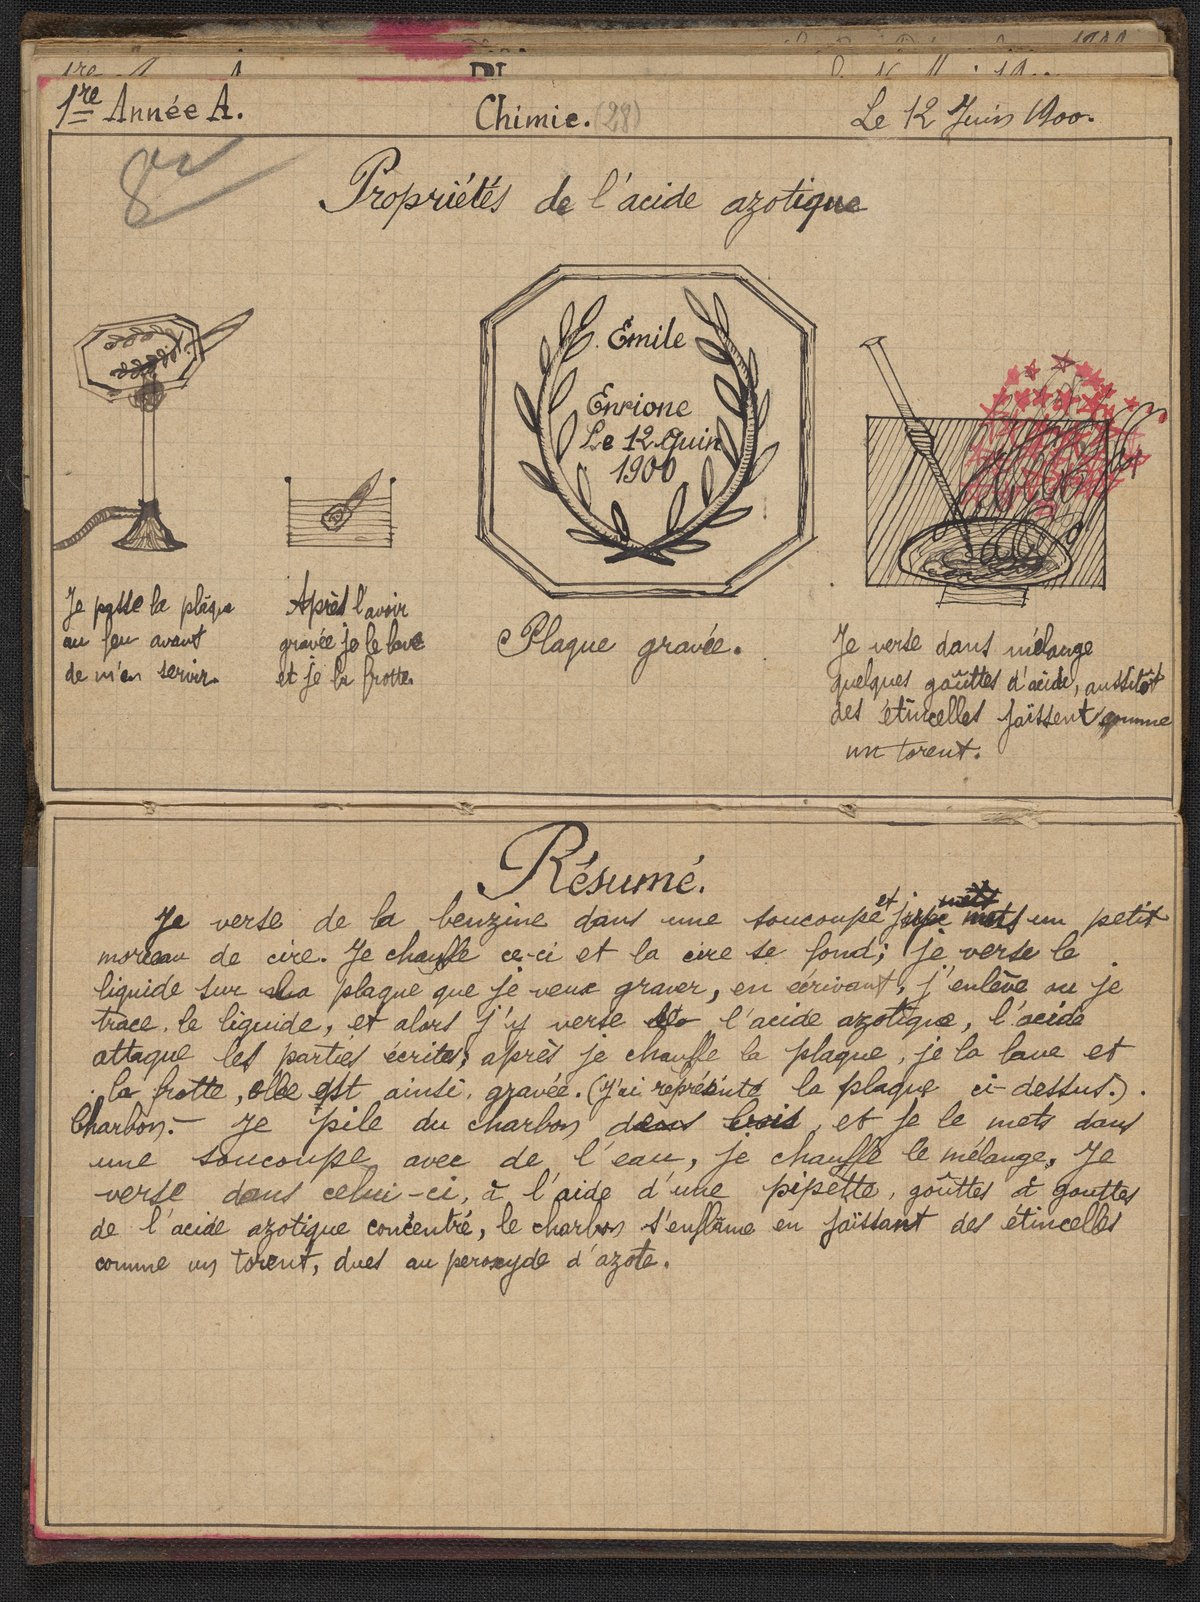 1re Année A.
Chimie. (28)
Le 12 Juin 1900.
8
Propriétés de l'acide azotique
Émile
Enrione
Le 12 Juin
1900
Je passe la plaque
au feu avant
de m'en servir.
Après l'avoir
gravée je le lave
et je la frotte.
Plaque gravée.
Je verse dans mélange
quelques goûttes d'acide, aussitôt
des étincelles jaïssent comme
un torent.
Résumé.
Je verse de la benzine dans une soucoupe et je mets un petit
morceau de cire. Je chauffe ce-ci et la cire se fond; je verse le
liquide sur la plaque que je veux graver, en écrivant, j'enlève ou je
trace le liquide, et alors j'y verse de l'acide azotique, l'acide
attaque les parties écrites; après je chauffe la plaque, je la lave et
la frotte, elle est ainsi gravée. (J'ai représinté la plaque ci-dessus.).
Charbon.- Je pile du charbon dans bois, et je le mets dans
une soucoupe avec de l'eau, je chauffe le mélange. Je
verse dans celui-ci, à l'aide d'une pipette, goûttes à gouttes
de l'acide azotique concentré, le charbon s'enflâme en jaïssant des étincelles
comme un torent, dues au peroxyde d'azote.